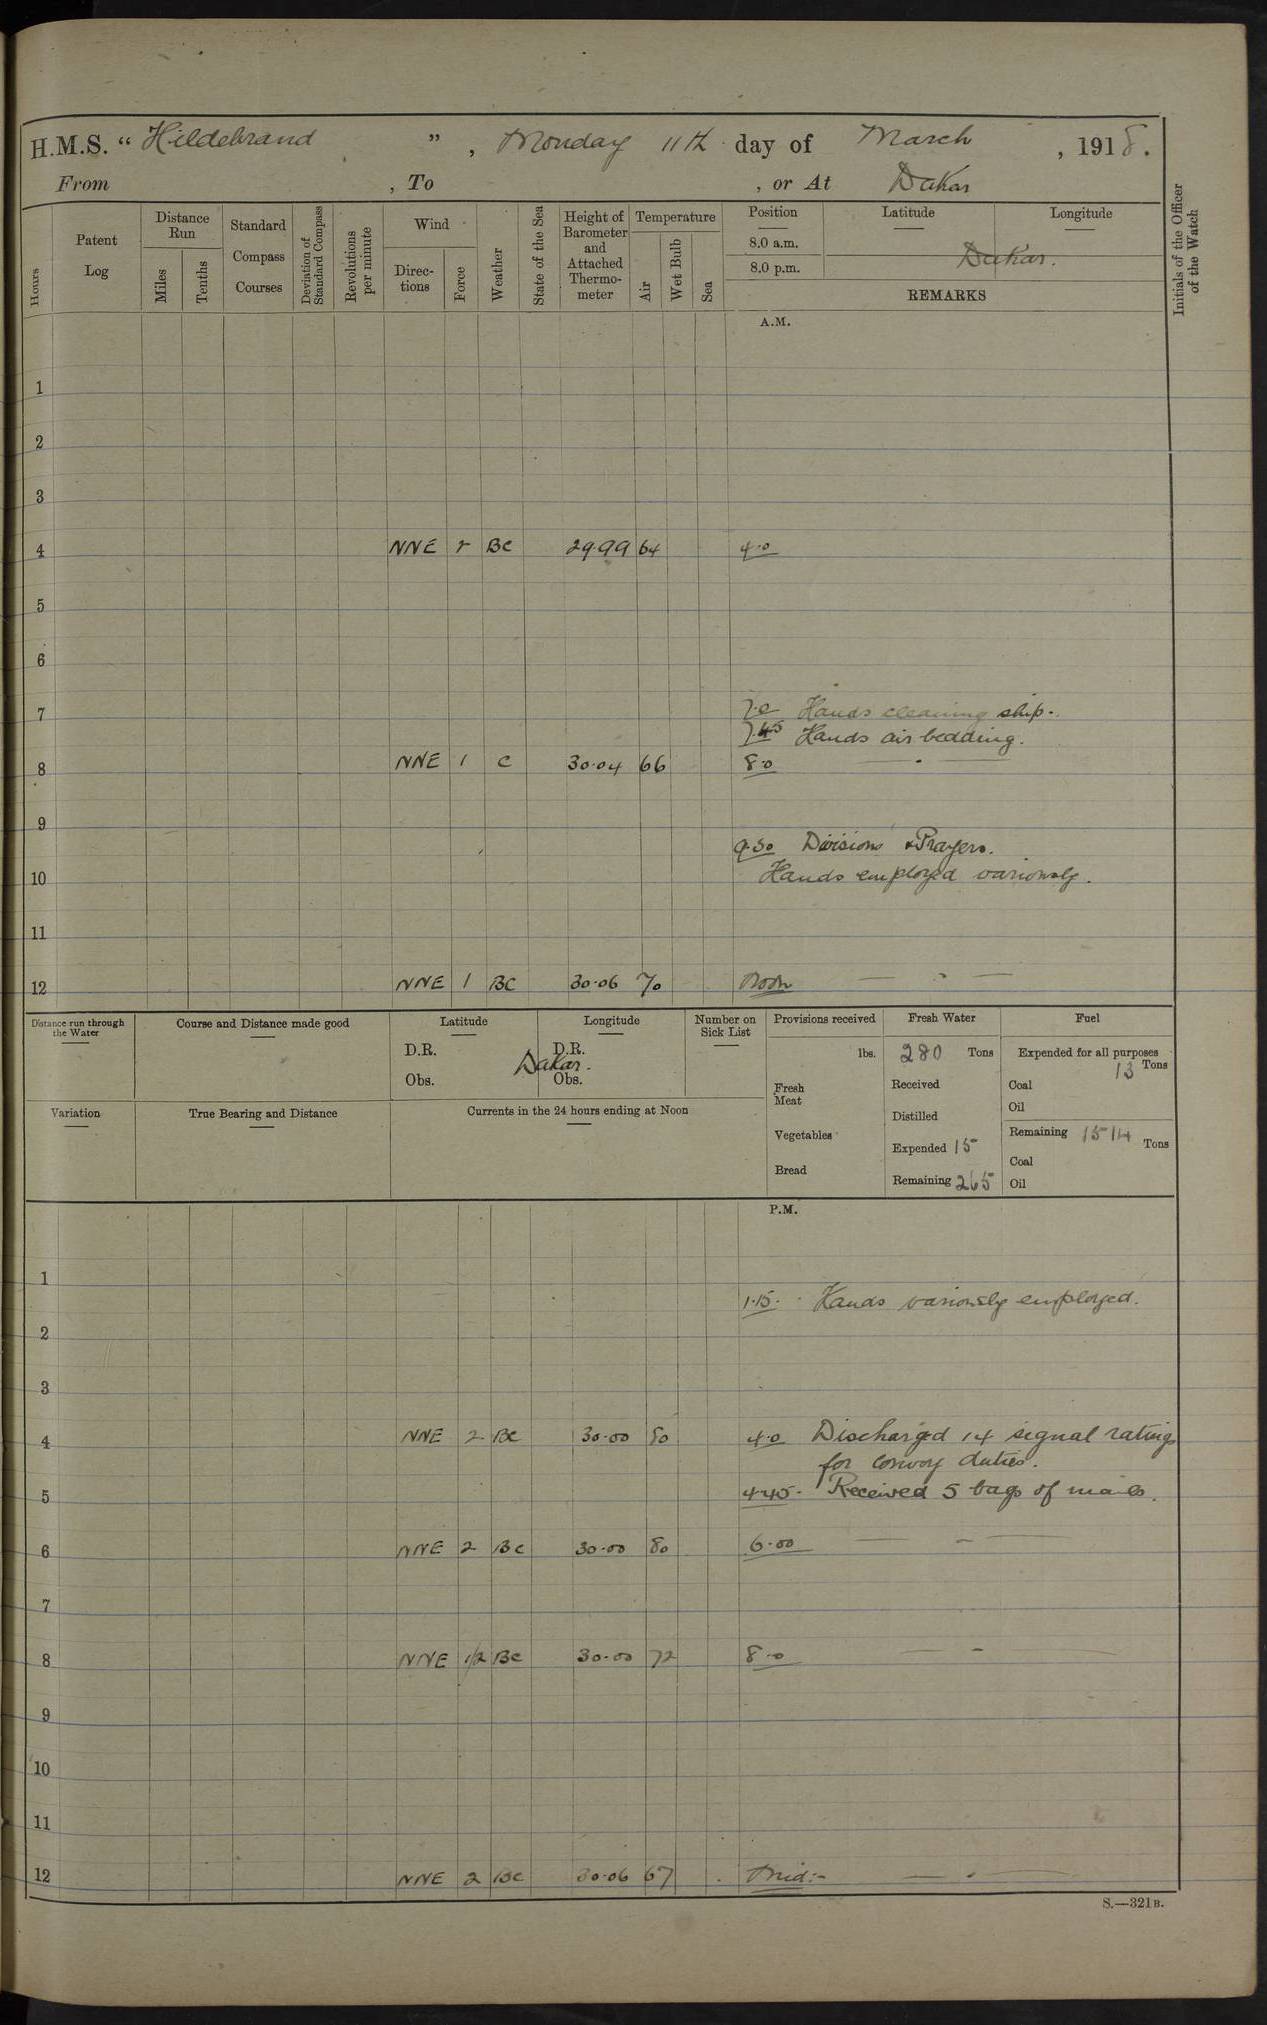 H.M.S. “ Hildebrand ” , Monday 11th day of March , 1918.
From , To , or At Dakar
Hours
Patent Log
Distance Run
Miles
Tenths
Standard Compass Courses
Deviation of Standard Compass
Revolutions per minute
Wind
Direc-tions
Force
Weather
State of the Sea
Height of Barometer and Attached Thermo-meter
Temperature
Air
Wet Bulb
Sea
Position
8.0 a.m.
8.0 p.m.
Latitude
Longitude
Dakar.
REMARKS
Initials of the Officer of the Watch
A.M.
1
2
3
4 NNE 2 BC 29.99 64 4.0
5
6
7 7.0 Hands cleaning ship.
7.45 Hands air bedding.
8 NNE 1 C 30.04 66 8.0
9
9.30 Divisions & Prayers.
10 Hands employed variously.
11
12 NNE 1 BC 30.06 70 Noon
Distance run through the Water
Course and Distance made good
Latitude
D.R.
Obs.
Longitude
D.R.
Obs.
Dakar.
Number on Sick List
Provisions received
lbs.
Fresh Meat
Vegetables
Bread
Fresh Water
280 Tons
Received
Distilled
Expended 15
Remaining 265
Fuel
Expended for all purposes
13 Tons
Coal
Oil
Remaining 1514 Tons
Coal
Oil
Variation
True Bearing and Distance
Currents in the 24 hours ending at Noon
P.M.
1
1.15. Hands variously employed.
2
3
4 NNE 2 BC 30.00 80 4.0 Discharged 14 signal ratings
for convoy duties.
5 4.45. Received 5 bags of mails.
6 NNE 2 BC 30.00 80 6.00
7
8 NNE 1/2 BC 30.00 72 8.0
9
10
11
12 NNE 2 BC 30.06 67 Mid:-
S.—321B.